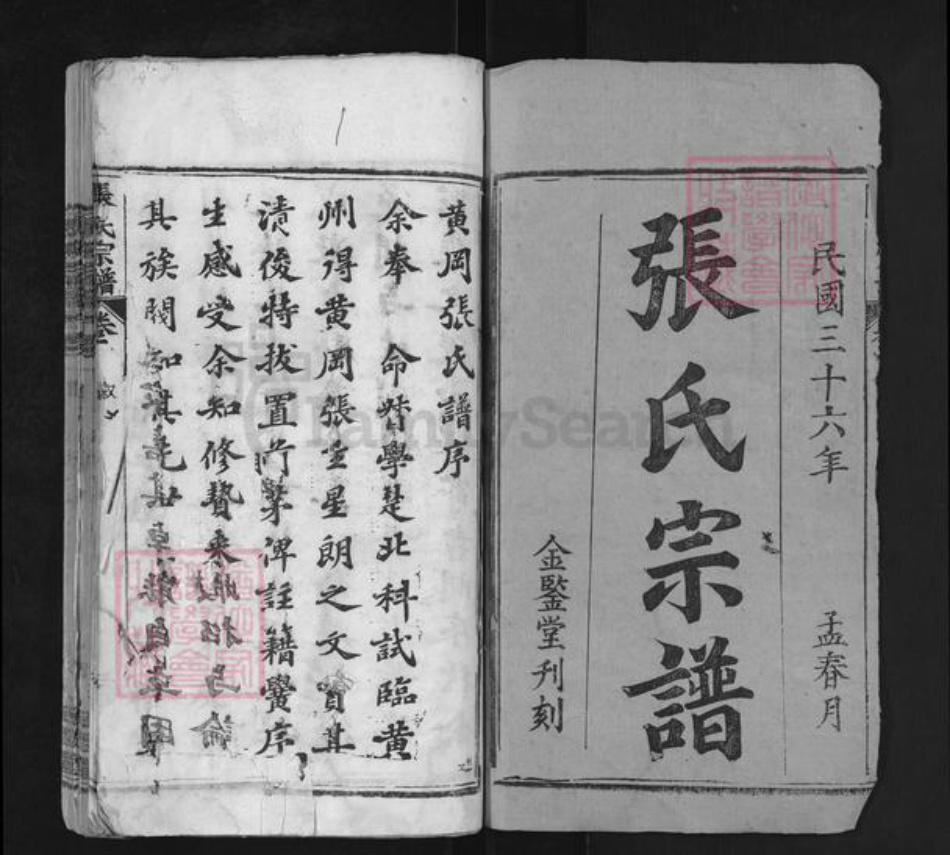 民國三十六年 孟春月
張氏宗譜
金鑒堂刊刻
黄岡張氏譜序
余奉 命督學楚北科試臨黄
州得黄岡張生星朗之文賞其
清俊特拔置前茅俾註籍黌序
生感受余知修贄来
其族閥知其
張氏宗譜
卷
FamilySearch